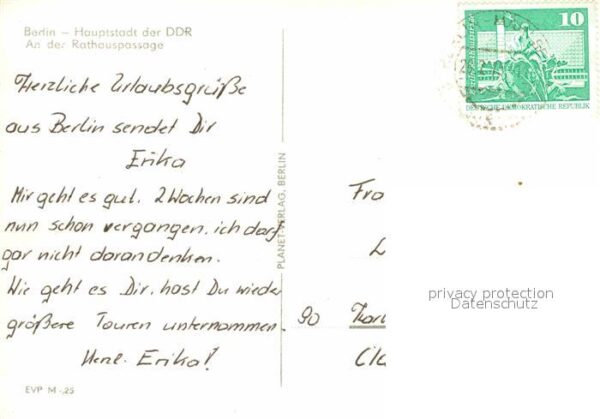 Berlin – Hauptstadt der DDR
An der Rathauspassage
Herzliche Urlaubsgrüße
aus Berlin sendet Dir
Erika
Mir geht es gut. 2 Wochen sind
nun schon vergangen, ich darf
gar nicht daran denken.
Wie geht es Dir, hast Du wieder
größere Touren unternommen.
Herzl. Erika!
EVP M -,25
PLANET-VERLAG, BERLIN
10
DEUTSCHE DEMOKRATISCHE REPUBLIK
Fra
90
privacy protection
Datenschutz